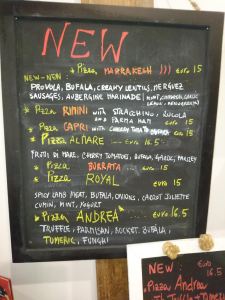 NEW
NEW-NEW: * Pizza MARRAKESH ))) euro 15
PROVOLA, BUFALA, CREAMY LENTILS, MERGUEZ
SAUSAGES, AUBERGINE MARINADE (MINT,
LEMON
* Pizza RIMINI WITH STRACCHINO, RUCOLA
AND PARMA HAM euro 15
* Pizza CAPRI WITH CHERRY TOMATO euro 15
* Pizza ALMARE --- euro 16.5
FRUTTI DI MARE, CHERRY TOMATOES, BUFALA, GARLIC, PARSLEY
* Pizza BURRATA euro 15
* Pizza ROYAL euro 15
SPICY LAMB MEAT, BUFALA, ONIONS, CARROT JULIETTE
CUMIN, MINT, YOGURT
* Pizza ANDREA euro 16.5
TRUFFLE, PARMISAN, ROCKET, BUFALA,
TUMERIC, FUNGHI
NEW: EURO
16.5
* Pizza Andrea